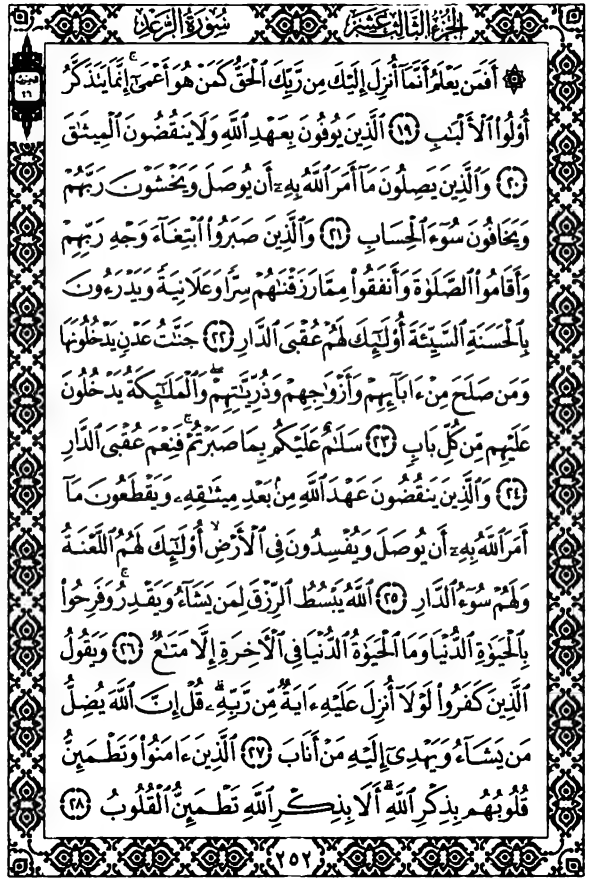 الجزء الثالث عشر
سورة الرعد
۞ أَفَمَن يَعْلَمُ أَنَّمَآ أُنزِلَ إِلَيْكَ مِن رَّبِّكَ ٱلْحَقُّ كَمَنْ هُوَ أَعْمَىٰٓ ۚ إِنَّمَا يَتَذَكَّرُ
أُو۟لُوا۟ ٱلْأَلْبَٰبِ ١٩ ٱلَّذِينَ يُوفُونَ بِعَهْدِ ٱللَّهِ وَلَا يَنقُضُونَ ٱلْمِيثَٰقَ
٢٠ وَٱلَّذِينَ يَصِلُونَ مَآ أَمَرَ ٱللَّهُ بِهِۦٓ أَن يُوصَلَ وَيَخْشَوْنَ رَبَّهُمْ
وَيَخَافُونَ سُوٓءَ ٱلْحِسَابِ ٢١ وَٱلَّذِينَ صَبَرُوا۟ ٱبْتِغَآءَ وَجْهِ رَبِّهِمْ
وَأَقَامُوا۟ ٱلصَّلَوٰةَ وَأَنفَقُوا۟ مِمَّا رَزَقْنَٰهُمْ سِرًّا وَعَلَانِيَةً وَيَدْرَءُونَ
بِٱلْحَسَنَةِ ٱلسَّيِّئَةَ أُو۟لَٰٓئِكَ لَهُمْ عُقْبَى ٱلدَّارِ ٢٢ جَنَّٰتُ عَدْنٍ يَدْخُلُونَهَا
وَمَن صَلَحَ مِنْ ءَابَآئِهِمْ وَأَزْوَٰجِهِمْ وَذُرِّيَّٰتِهِمْ ۖ وَٱلْمَلَٰٓئِكَةُ يَدْخُلُونَ
عَلَيْهِم مِّن كُلِّ بَابٍ ٢٣ سَلَٰمٌ عَلَيْكُم بِمَا صَبَرْتُمْ ۚ فَنِعْمَ عُقْبَى ٱلدَّارِ
٢٤ وَٱلَّذِينَ يَنقُضُونَ عَهْدَ ٱللَّهِ مِنۢ بَعْدِ مِيثَٰقِهِۦ وَيَقْطَعُونَ مَآ
أَمَرَ ٱللَّهُ بِهِۦٓ أَن يُوصَلَ وَيُفْسِدُونَ فِى ٱلْأَرْضِ ۙ أُو۟لَٰٓئِكَ لَهُمُ ٱللَّعْنَةُ
وَلَهُمْ سُوٓءُ ٱلدَّارِ ٢٥ ٱللَّهُ يَبْسُطُ ٱلرِّزْقَ لِمَن يَشَآءُ وَيَقْدِرُ ۚ وَفَرِحُوا۟
بِٱلْحَيَوٰةِ ٱلدُّنْيَا وَمَا ٱلْحَيَوٰةُ ٱلدُّنْيَا فِى ٱلْءَاخِرَةِ إِلَّا مَتَٰعٌ ٢٦ وَيَقُولُ
ٱلَّذِينَ كَفَرُوا۟ لَوْلَآ أُنزِلَ عَلَيْهِ ءَايَةٌ مِّن رَّبِّهِۦ ۗ قُلْ إِنَّ ٱللَّهَ يُضِلُّ
مَن يَشَآءُ وَيَهْدِىٓ إِلَيْهِ مَنْ أَنَابَ ٢٧ ٱلَّذِينَ ءَامَنُوا۟ وَتَطْمَئِنُّ
قُلُوبُهُم بِذِكْرِ ٱللَّهِ ۗ أَلَا بِذِكْرِ ٱللَّهِ تَطْمَئِنُّ ٱلْقُلُوبُ ٢٨
٢٥٢